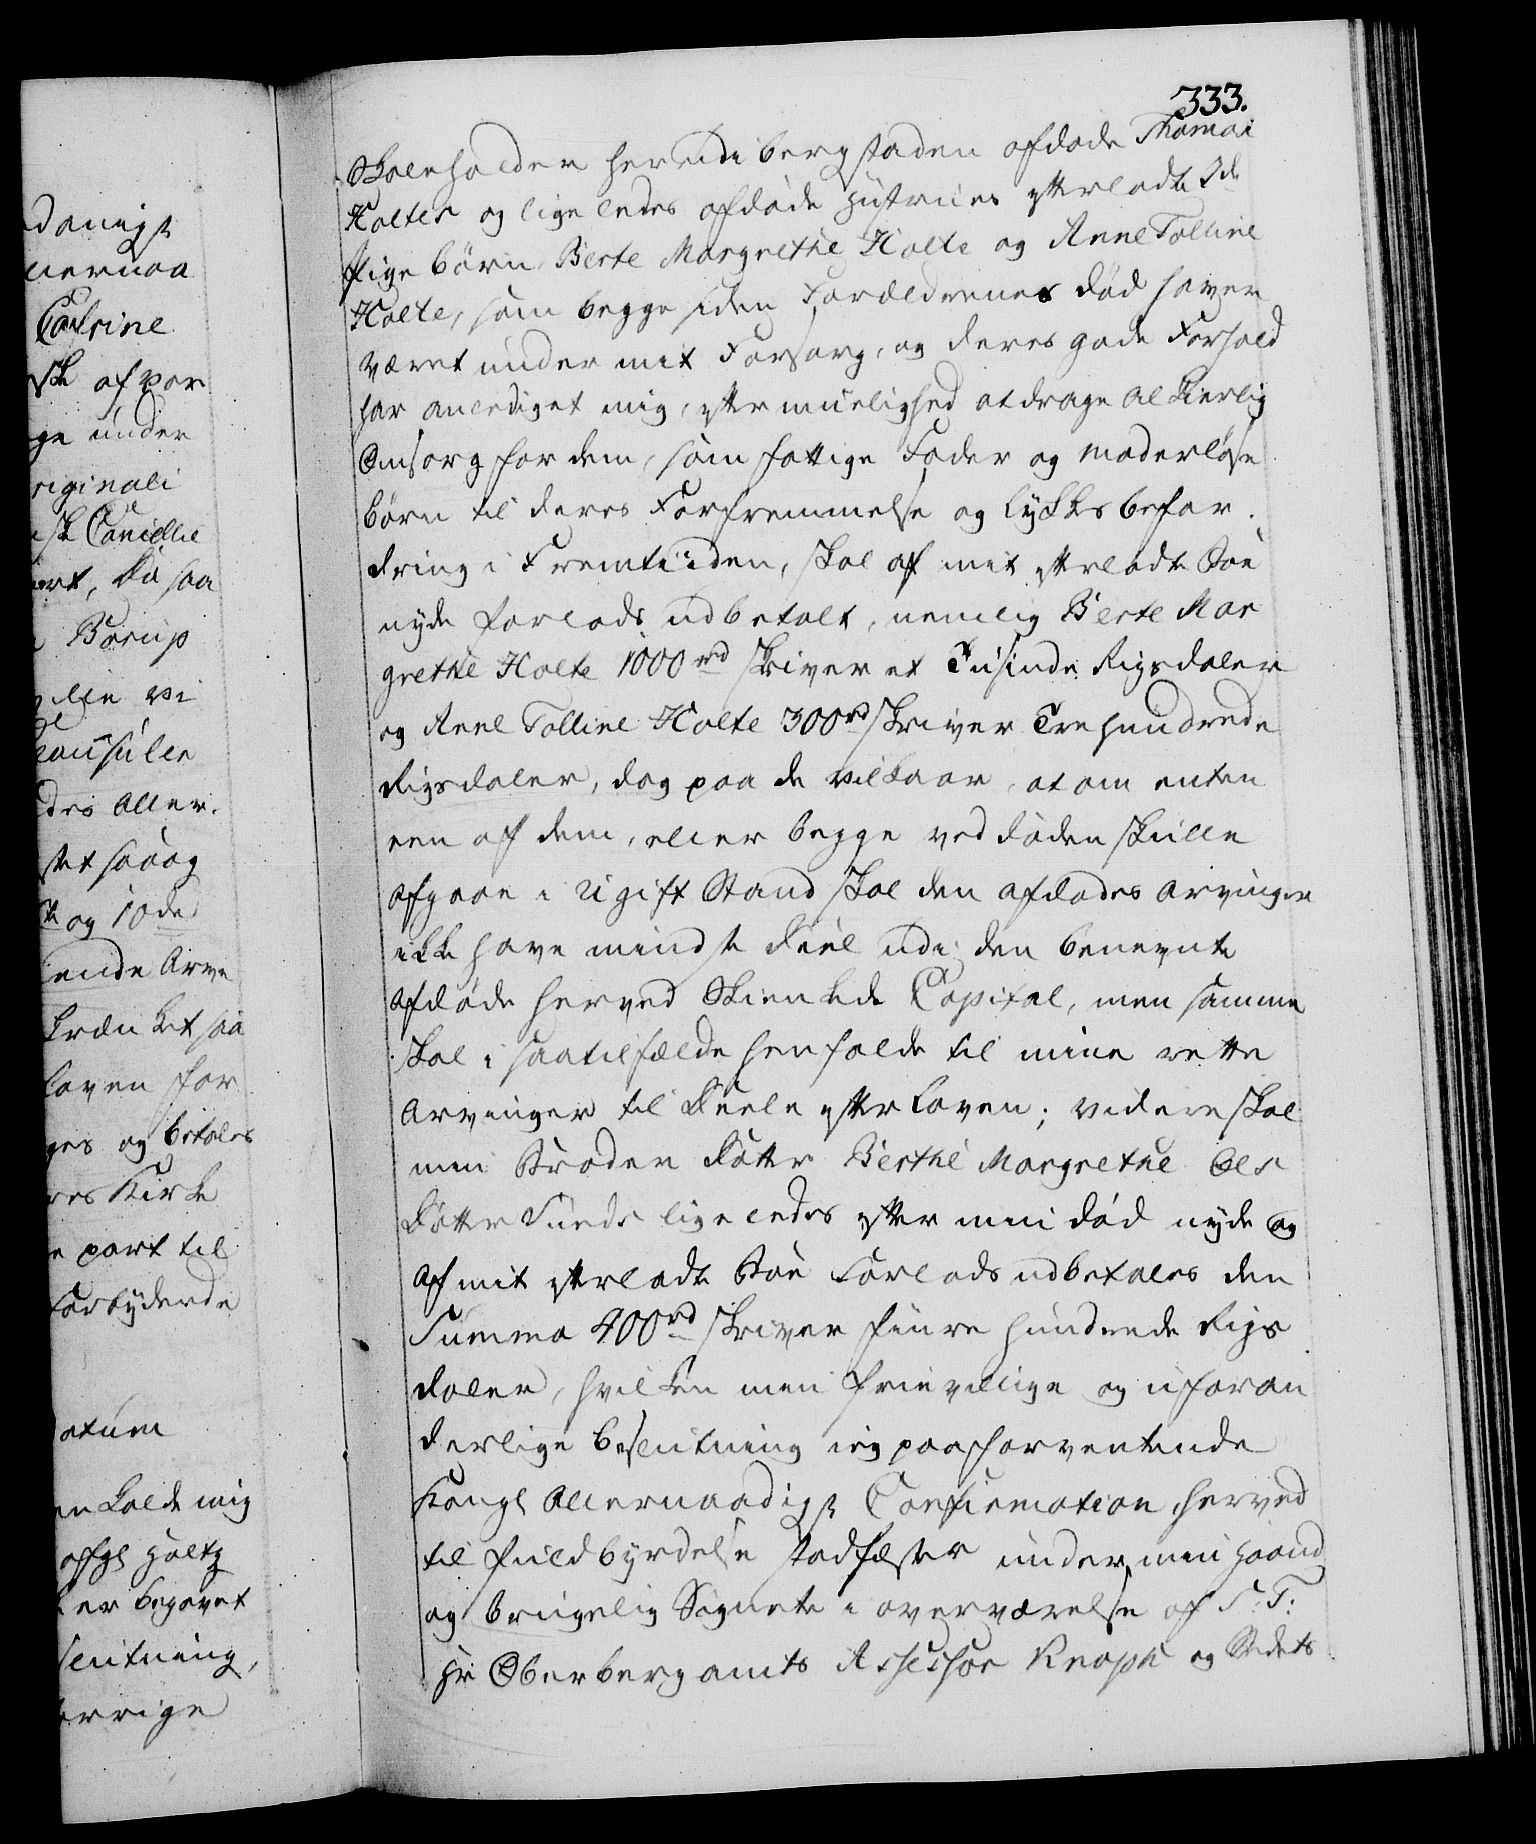 333.
Skoleholder her udi bergstaden afdøde Thomæ
Holtes og ligeledes afdøde Hustrues efterladte 2de
Pigebørn Berte Margrethe Holte og Anne Tolline
Holte, som begge siden Forældrenes død haver
været under mit Forsorg, og deres gode Forhold
har anlediget mig, efter muelighed at drage al kierlig
Omsorg for dem, som fattige Fader og moderløse
børn til deres Forfremmelse og lykkes befor-
dring i Fremtiiden, skal af mit efterladte Boe
nyde forlods udbetalt, nemlig Berte Mar
grethe Holte 1000rd skriver et Tusinde Rigsdaler
og Anne Tolline Holte 300rd skriver Trehundrede
Rigsdaler, dog paa de vilkaar, at om enten
een af dem, eller begge ved døden skulle
afgaae i Ugift Stand skal den afdødes arvinger
ikke have mindste deel udi den benevnte
afdøde herved Skienkede Capital, men samme
skal i saatilfælde henfalde til mine rette
Arvinger til deele efter Loven; videre skal
min Broder datter Berthe Margrethe Ols
datter Sunds ligeledes efter min død nyde og
af mit efterladte Boe Forlods udbetales den
Summa 400rd skriver fiire hundrede Rigs
daler, hvilken min frievillige og uforan
derlige beslutning ieg paa forventende
Kongl Allernaadigst Confirmation herved
til fuldbyrdelse stadfæster under min haand
og brugelig Signete i overværelse af S: T:
Hr Oberbergamts Assessor Knoph og Stedets
danigst
lernaa
Catrine
af vor
ge under
riginali
Camille
ert, da saa
Borup
vi
Consulen
des Aller-
stet saaog
og 10de
ende Arve
krænket saa
Loven for
ges og betales
res Kirke
part til
forbydende
atum
en kalde mig
er begavet
slutning,
rrige